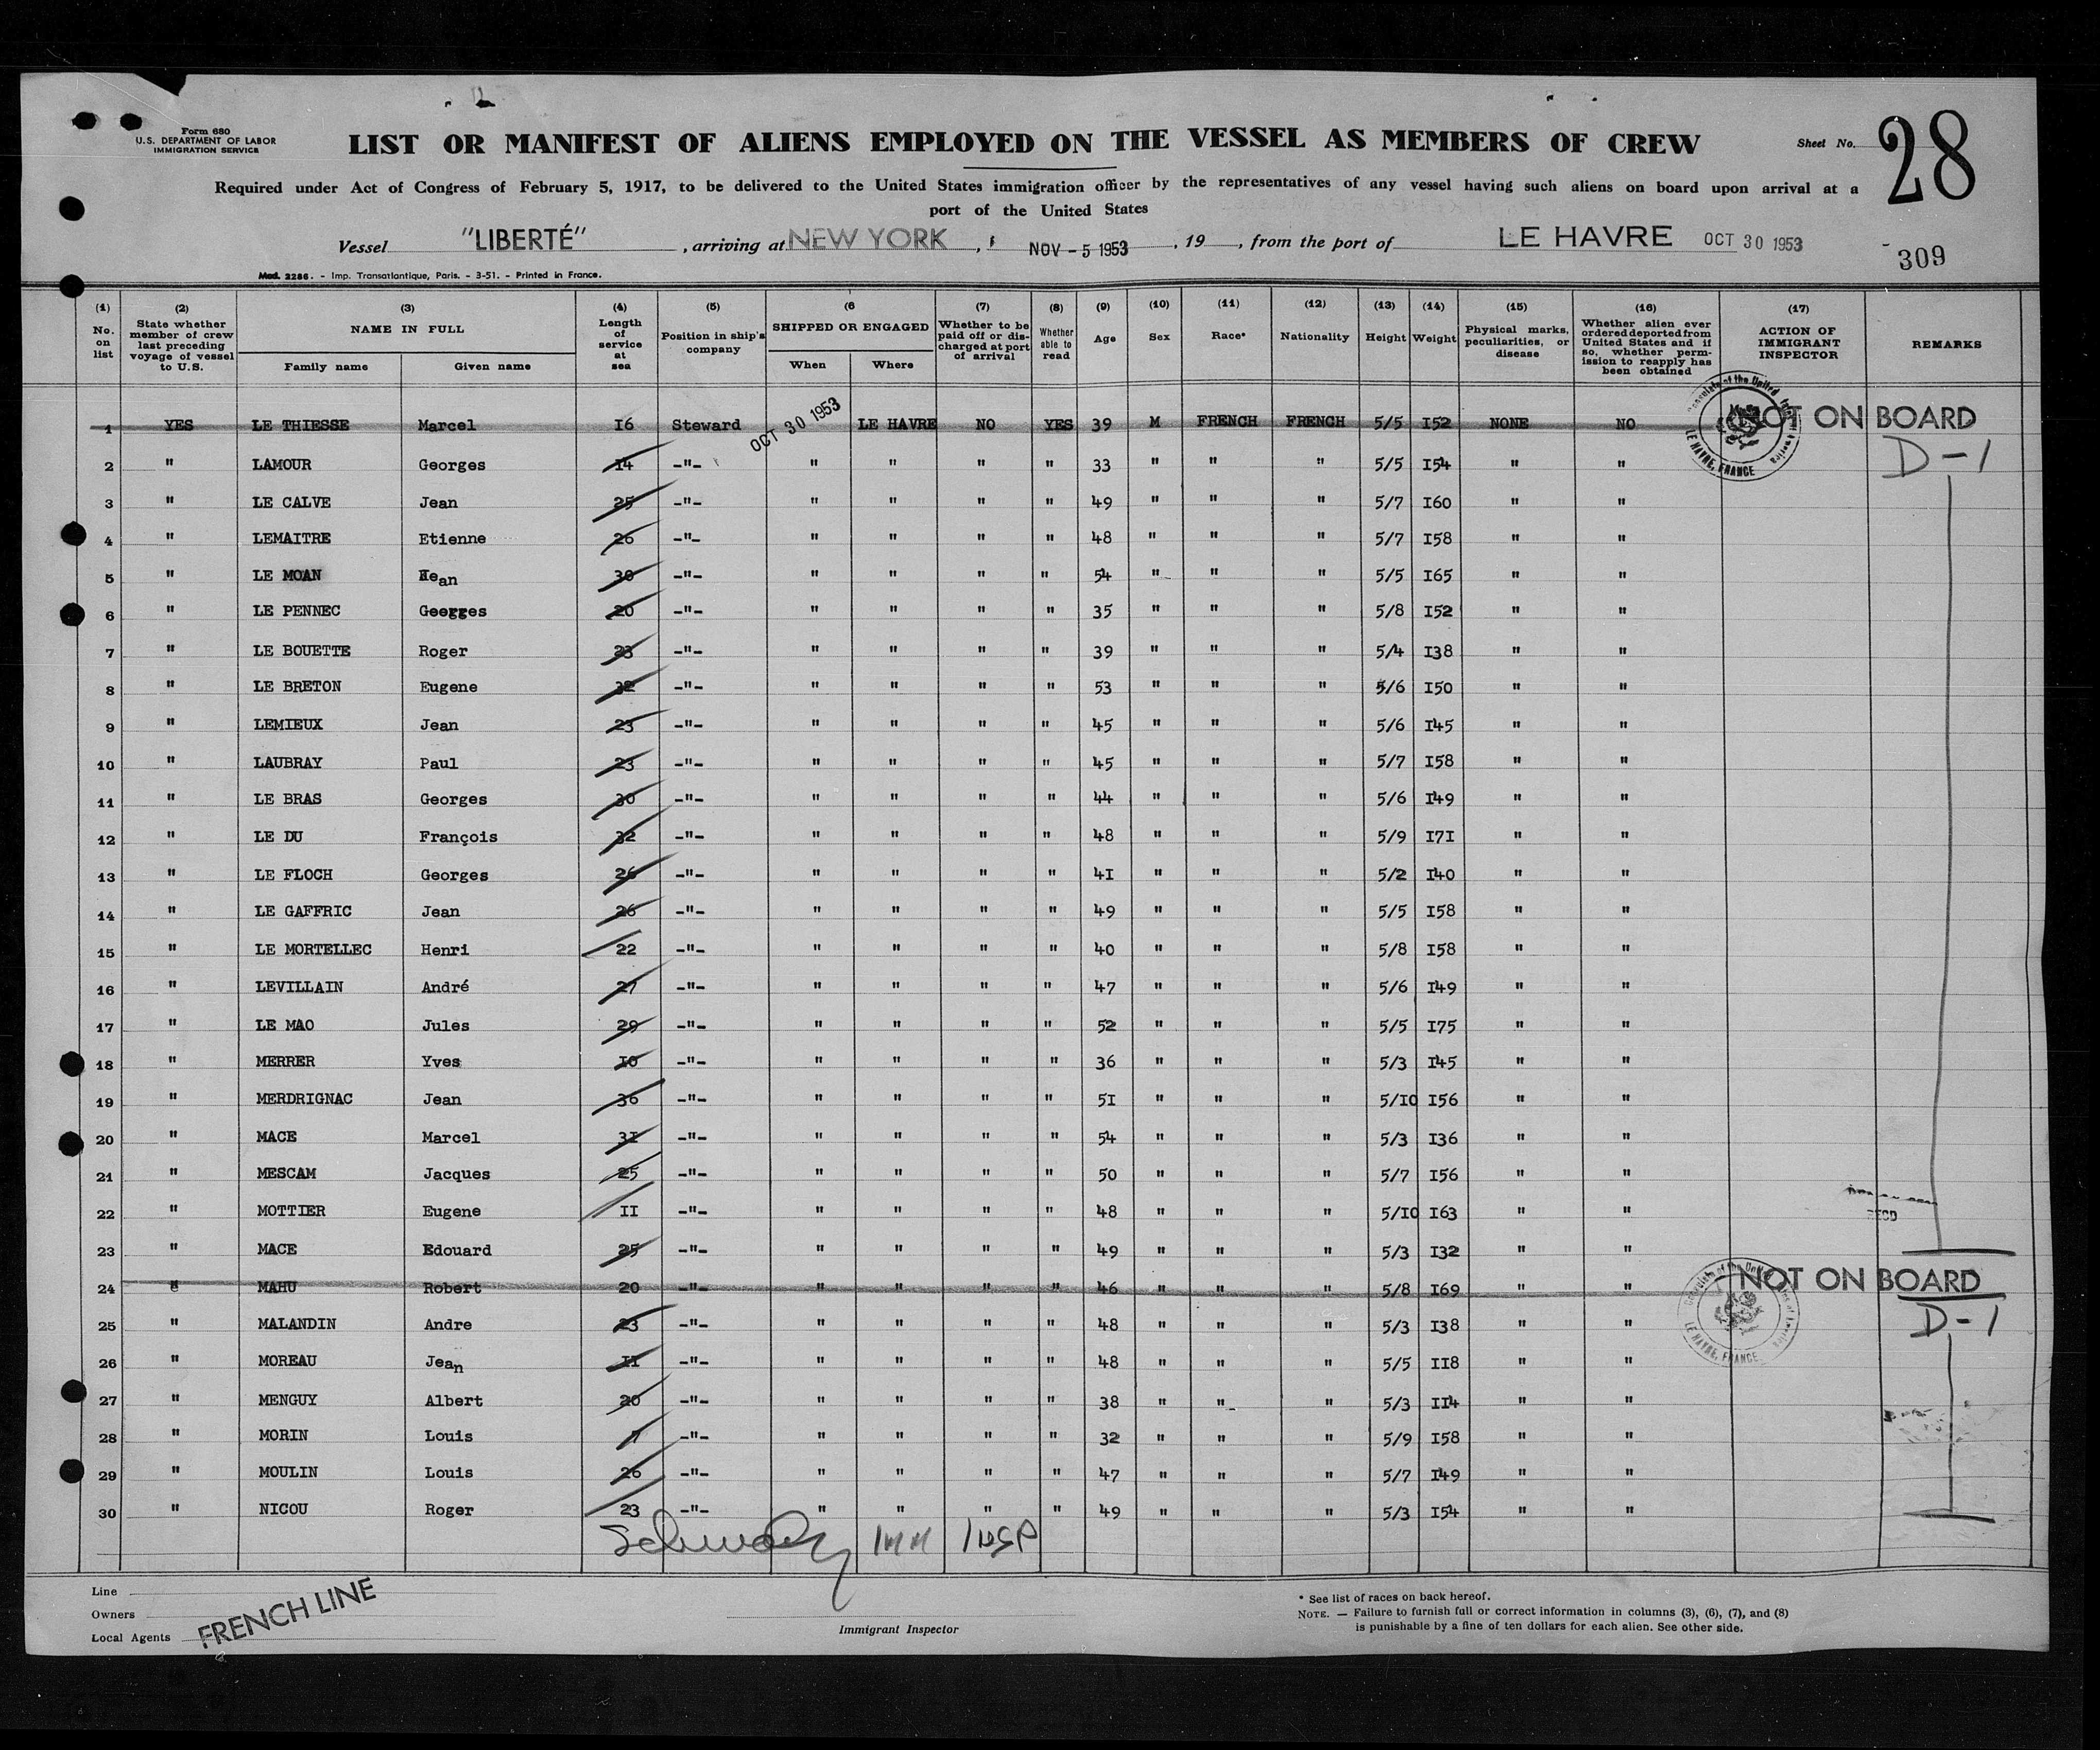 Form 680
U.S. DEPARTMENT OF LABOR
IMMIGRATION SERVICE
LIST OR MANIFEST OF ALIENS EMPLOYED ON THE VESSEL AS MEMBERS OF CREW
Sheet No. 28
Required under Act of Congress of February 5, 1917, to be delivered to the United States immigration officer by the representatives of any vessel having such aliens on board upon arrival at a
port of the United States
Vessel "LIBERTÉ", arriving at NEW YORK, NOV - 5 1953, 19 , from the port of LE HAVRE OCT 30 1953
309
Mod. 2286. - Imp. Transatlantique, Paris. - 3-51. - Printed in France.
(1) No. on list (2) State whether member of crew last preceding voyage of vessel to U.S. (3) NAME IN FULL Family name Given name (4) Length of service at sea (5) Position in ship's company (6 SHIPPED OR ENGAGED When Where (7) Whether to be paid off or discharged at port of arrival (8) Whether able to read (9) Age (10) Sex (11) Race* (12) Nationality (13) Height (14) Weight (15) Physical marks, peculiarities, or disease (16) Whether alien ever ordered deported from United States and if so, whether permission to reapply has been obtained (17) ACTION OF IMMIGRANT INSPECTOR REMARKS
1 YES LE THIESSE Marcel 16 Steward OCT 30 1953 LE HAVRE NO YES 39 M FRENCH FRENCH 5/5 I52 NONE NO NOT ON BOARD
2 " LAMOUR Georges 14 -"- " " " " 33 " " " 5/5 I54 " " D-1
3 " LE CALVE Jean 25 -"- " " " " 49 " " " 5/7 I60 " "
4 " LEMAITRE Etienne 26 -"- " " " " 48 " " " 5/7 I58 " "
5 " LE MOAN Jean 30 -"- " " " " 54 " " " 5/5 I65 " "
6 " LE PENNEC Georges 20 -"- " " " " 35 " " " 5/8 I52 " "
7 " LE BOUETTE Roger 23 -"- " " " " 39 " " " 5/4 I38 " "
8 " LE BRETON Eugene 32 -"- " " " " 53 " " " 5/6 I50 " "
9 " LEMIEUX Jean 23 -"- " " " " 45 " " " 5/6 I45 " "
10 " LAUBRAY Paul 23 -"- " " " " 45 " " " 5/7 I58 " "
11 " LE BRAS Georges 30 -"- " " " " 44 " " " 5/6 I49 " "
12 " LE DU François 32 -"- " " " " 48 " " " 5/9 I7I " "
13 " LE FLOCH Georges 26 -"- " " " " 4I " " " 5/2 I40 " "
14 " LE GAFFRIC Jean 26 -"- " " " " 49 " " " 5/5 I58 " "
15 " LE MORTELLEC Henri 22 -"- " " " " 40 " " " 5/8 I58 " "
16 " LEVILLAIN André 27 -"- " " " " 47 " " " 5/6 I49 " "
17 " LE MAO Jules 29 -"- " " " " 52 " " " 5/5 I75 " "
18 " MERRER Yves I0 -"- " " " " 36 " " " 5/3 I45 " "
19 " MERDRIGNAC Jean 36 -"- " " " " 5I " " " 5/I0 I56 " "
20 " MACE Marcel 3I -"- " " " " 54 " " " 5/3 I36 " "
21 " MESCAM Jacques 25 -"- " " " " 50 " " " 5/7 I56 " "
22 " MOTTIER Eugene II -"- " " " " 48 " " " 5/I0 I63 " "
23 " MACE Edouard 25 -"- " " " " 49 " " " 5/3 I32 " "
24 " MAHU Robert 20 -"- " " " " 46 " " " 5/8 I69 " " NOT ON BOARD
25 " MALANDIN Andre 23 -"- " " " " 48 " " " 5/3 I38 " " D-1
26 " MOREAU Jean II -"- " " " " 48 " " " 5/5 II8 " "
27 " MENGUY Albert 20 -"- " " " " 38 " " " 5/3 II4 " "
28 " MORIN Louis 7 -"- " " " " 32 " " " 5/9 I58 " "
29 " MOULIN Louis 26 -"- " " " " 47 " " " 5/7 I49 " "
30 " NICOU Roger 23 -"- " " " " 49 " " " 5/3 I54 " "
IMM INSP
Line
Owners
Local Agents
FRENCH LINE
Immigrant Inspector
* See list of races on back hereof.
NOTE. — Failure to furnish full or correct information in columns (3), (6), (7), and (8)
is punishable by a fine of ten dollars for each alien. See other side.
LE HAVRE, FRANCE
LE HAVRE, FRANCE